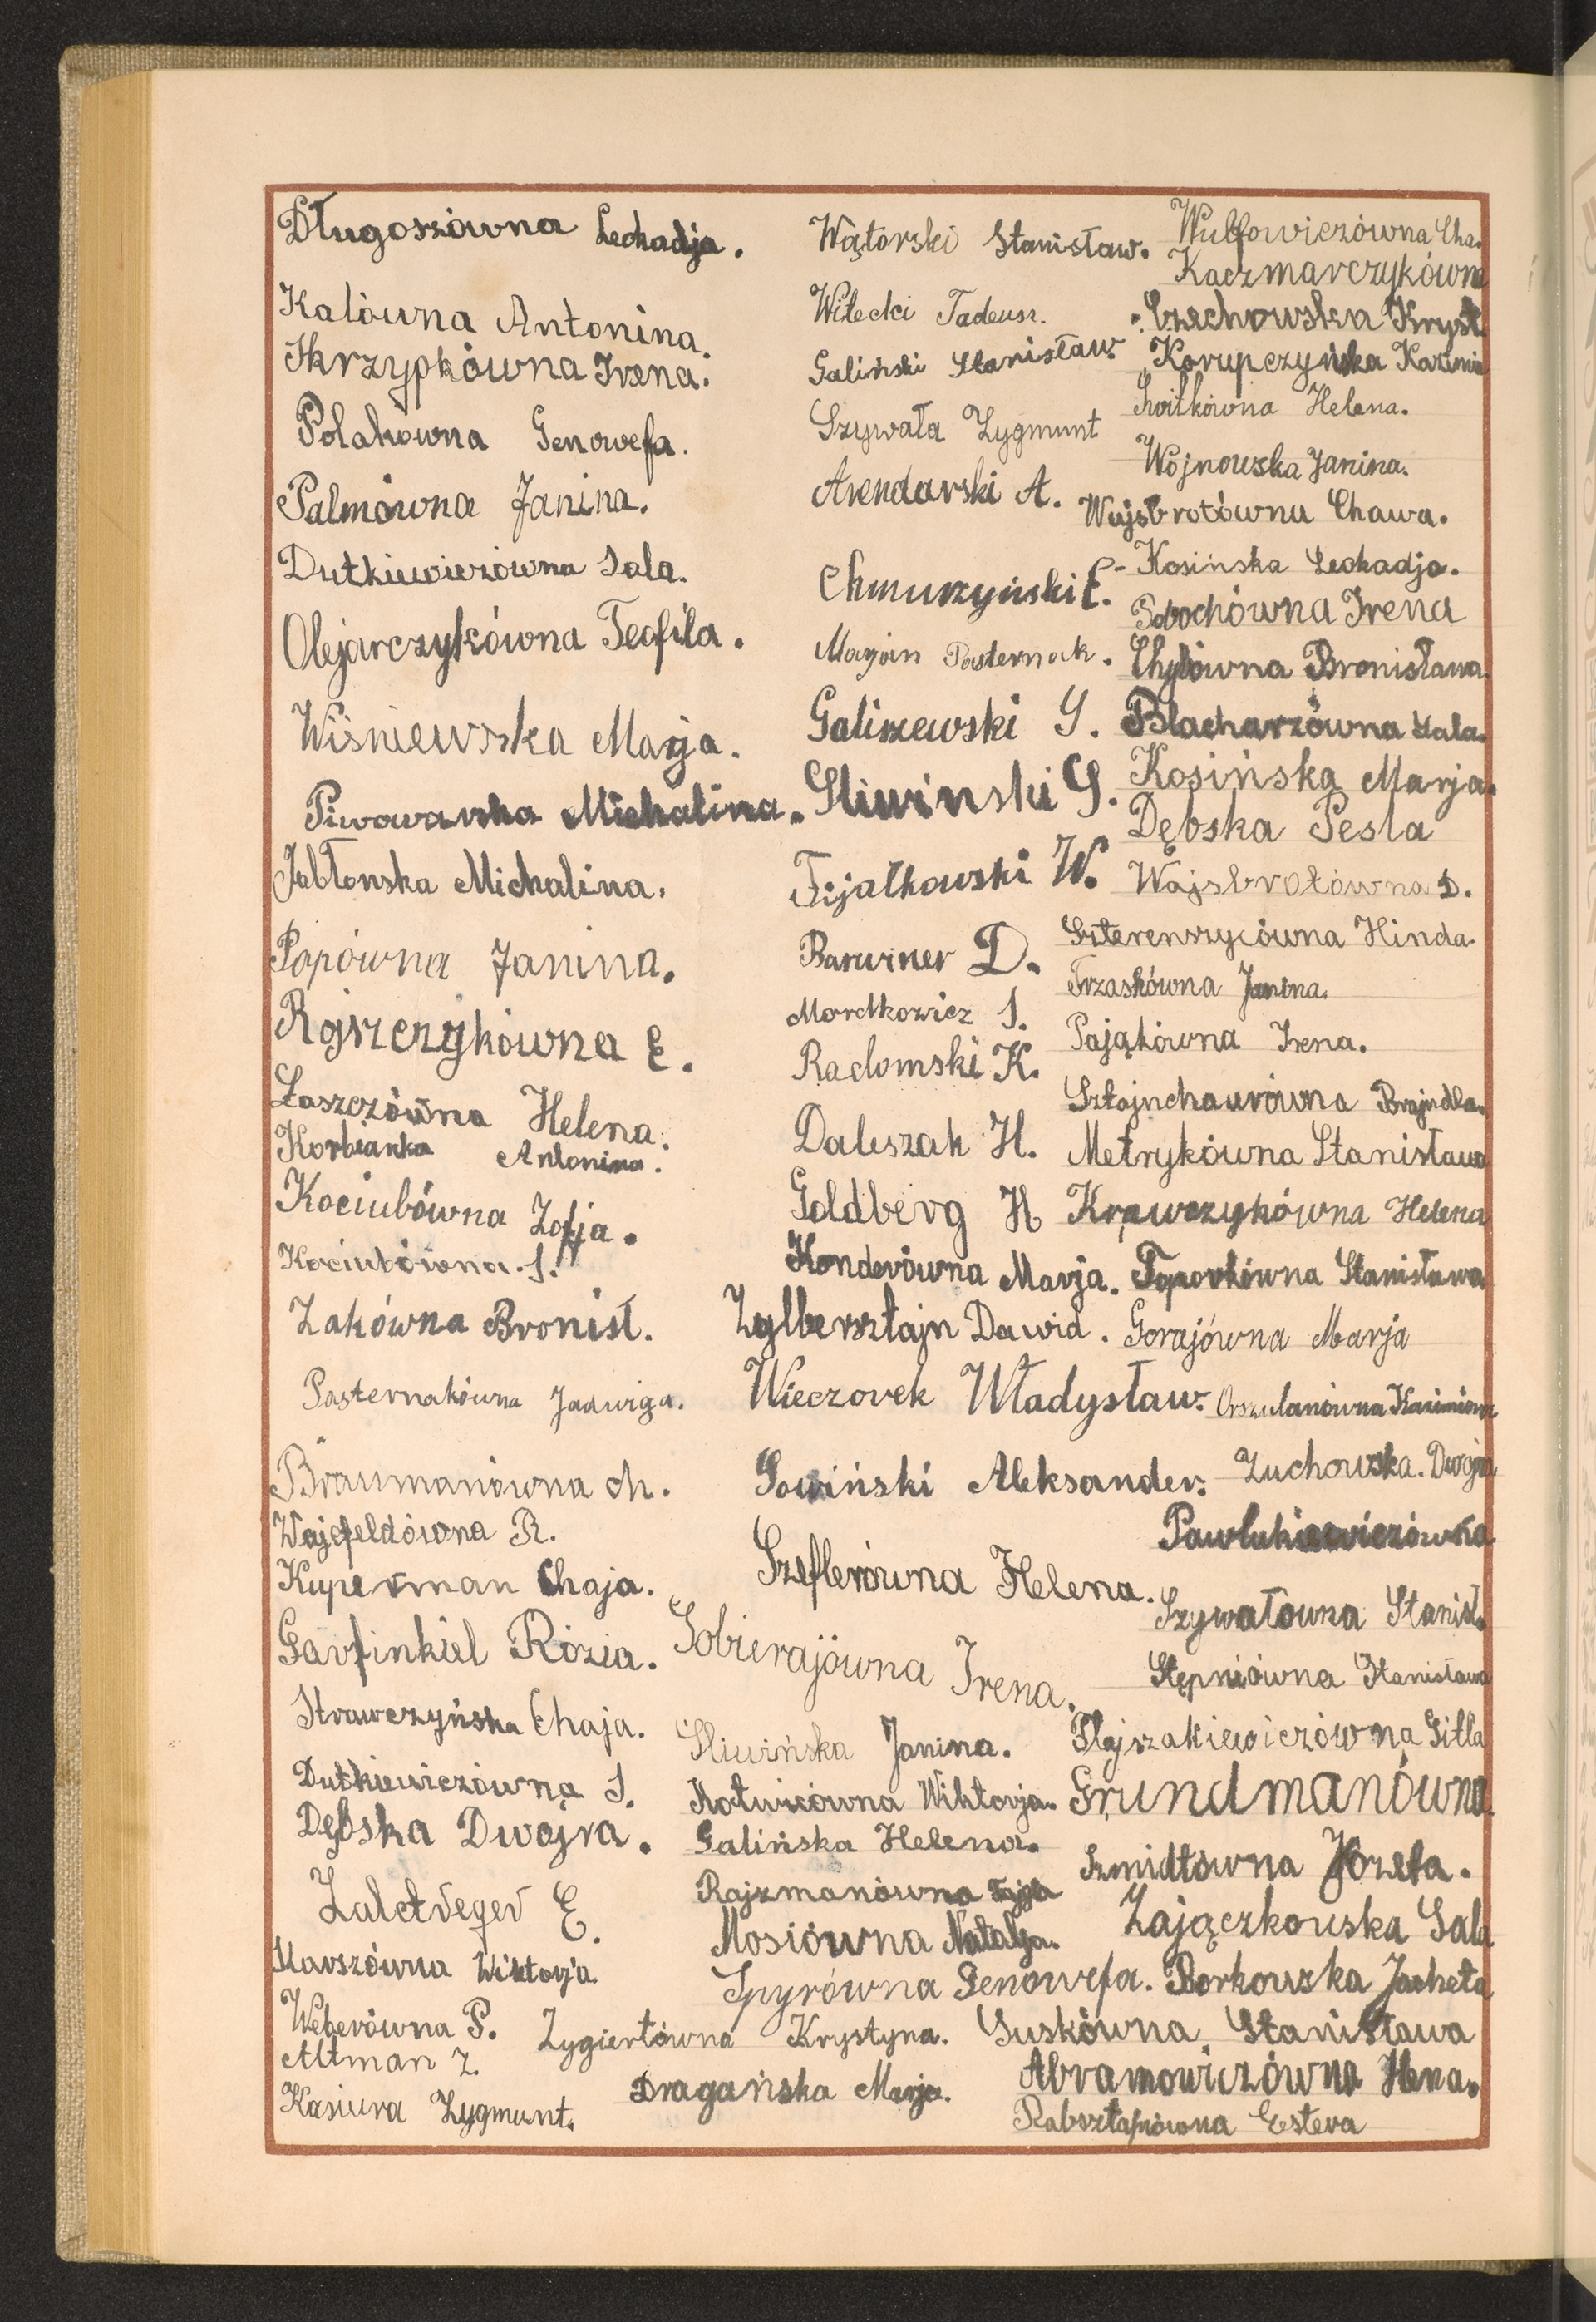 Długoszówna Leokadja.
Kalówna Antonina.
Skrzypkówna Irena.
Polakówna Genowefa.
Palmówna Janina.
Dutkiewiczówna Sala.
Olejarczykówna Teofila.
Wiśniewska Marja.
Piwowarska Michalina.
Jabłonska Michalina.
Popówna Janina.
Rajszczykówna E.
Łaszczówna Helena.
Korbianka Antonina.
Kociubówna Zofja.
Kociubówna S.
Żakówna Bronisł.
Pasternakówna Jadwiga.
Braumanówna M.
Wajcfeldówna R.
Kuperman Chaja.
Garfinkiel Rózia.
Strawczyńska Chaja.
Dutkiewiczówna S.
Dębska Dwojra.
Zalctreger E.
Karszówna Wiktorja.
Weberówna P.
Altman Z.
Kasiura Zygmunt.
Wątorski Stanisław.
Witecki Tadeusz.
Galiński Stanisław.
Szywała Zygmunt
Arendarski A.
Chmurzyński E.
Marjan Pasternak.
Galiszewski S.
Śliwinski S.
Fijałkowski W.
Barwiner D.
Mordkowicz S.
Radomski K.
Daleszak H.
Goldberg H
Konderówna Marja.
Zylbersztajn Dawid.
Wieczorek Władysław.
Sowiński Aleksander.
Szeflerówna Helena.
Sobierajówna Irena.
Śliwińska Janina.
Kotwicówna Wiktorja.
Galińska Helena.
Rajzmanówna Fajga
Mosiówna Natalja.
Spyrówna Genowefa.
Zygiertówna Krystyna.
Dragańska Marja.
Wulfowiczówna Cha.
Kaczmarczykówna
Czechowska Kryst.
Korupczyńska Kazimie
Świtkówna Helena.
Wójnowska Janina.
Wajsbrotówna Chawa.
Kosińska Leokadja.
Sobochówna Irena
Chylówna Bronisława.
Blacharzówna Sala.
Kosińska Marja.
Dębska Pesla
Wajsbrotówna D.
Szterenszycówna Hinda.
Trzaskówna Janina.
Pająkówna Irena.
Sztajnchaurówna Brajndla.
Metrykówna Stanisława
Krawczykówna Helena
Toporkówna Stanisława
Gorajówna Marja
Orszulanówna Kazimiera
Żuchowska Dwojra
Pawlukiewiczówna
Szywałówna Stanisł.
Stępniówna Stanisława
Flajszakiewiczówna Gitla
Grundmanówna.
Szmidtówna Józefa.
Zajączkowska Sala
Borkowska Jacheta
Suskówna Stanisława
Abramowiczówna Hena.
Rabsztajnówna Estera